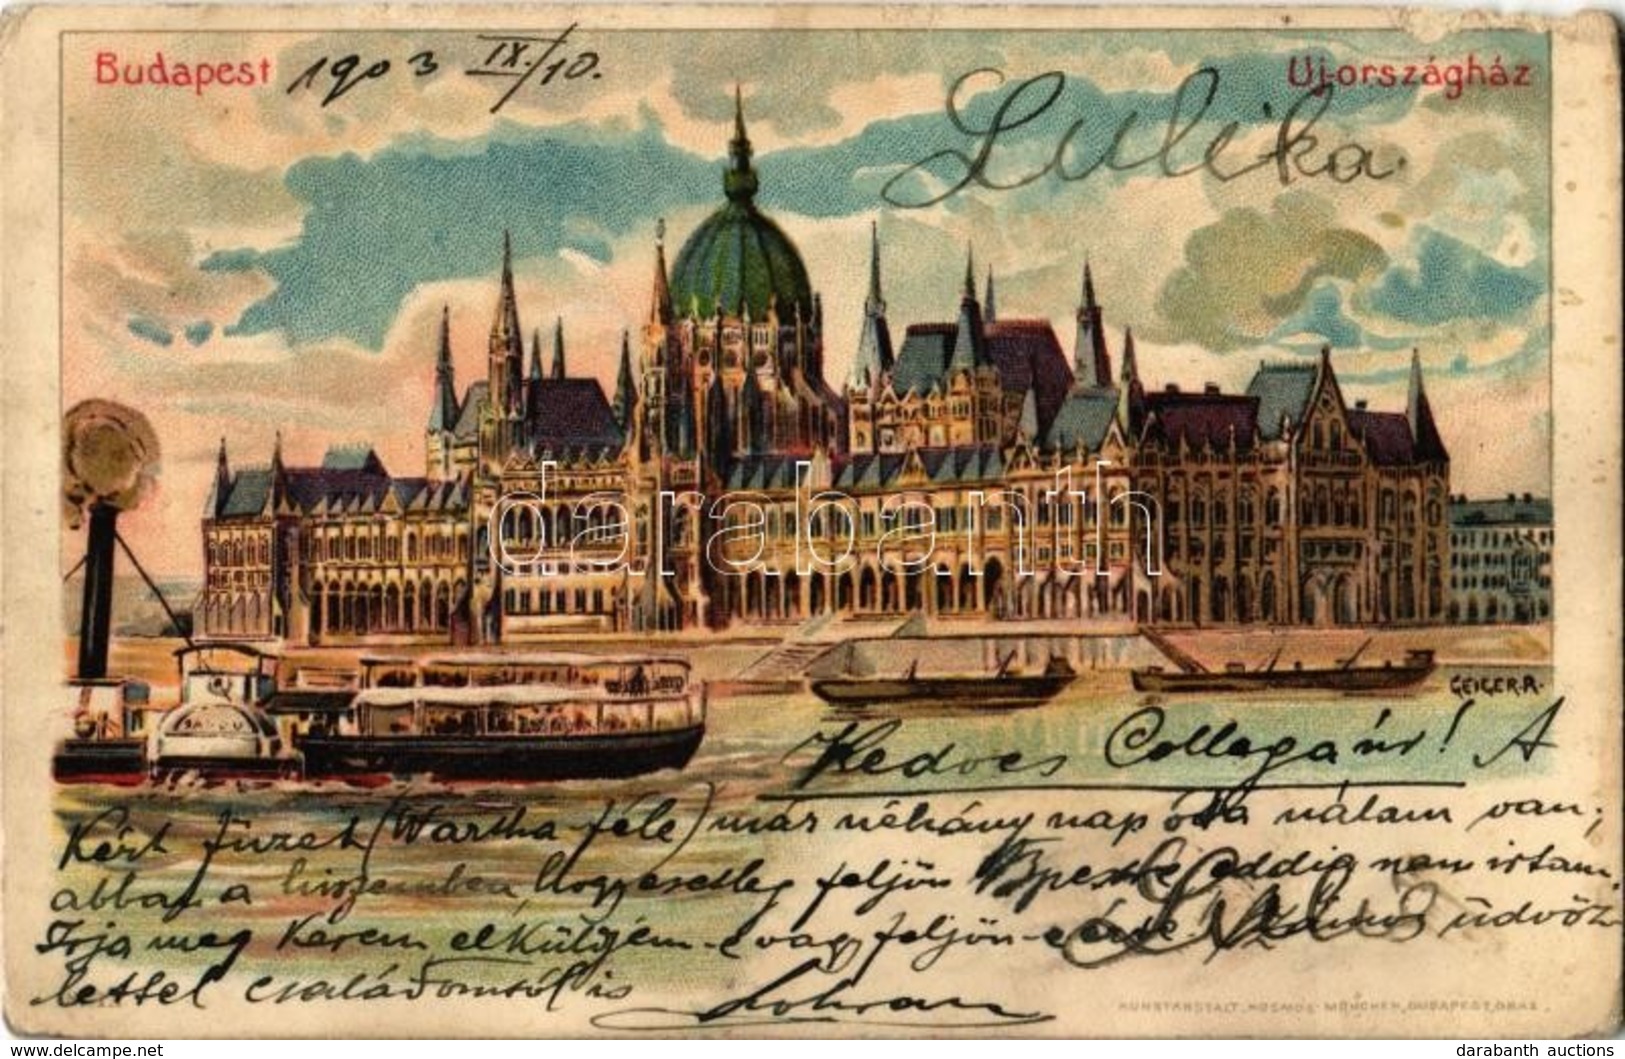 Budapest 1903 IX./10. Uj-országház
Lulika
darabanth
GEIGER.R.
Kedves Collega úr! A
Kért füzet (Wartha-féle) már néhány nap óta nálam van;
abban a hiszemben, hogy esetleg feljön Bpestre eddig nem irtam.
Irja meg Kérem elküldjem-e vagy feljön-e érte. Számos üdvöz-
lettel családomtól is
KUNSTANSTALT KOSMOS MÜNCHEN, BUDAPEST, GRAZ.
delcampe.net
darabanth auctions